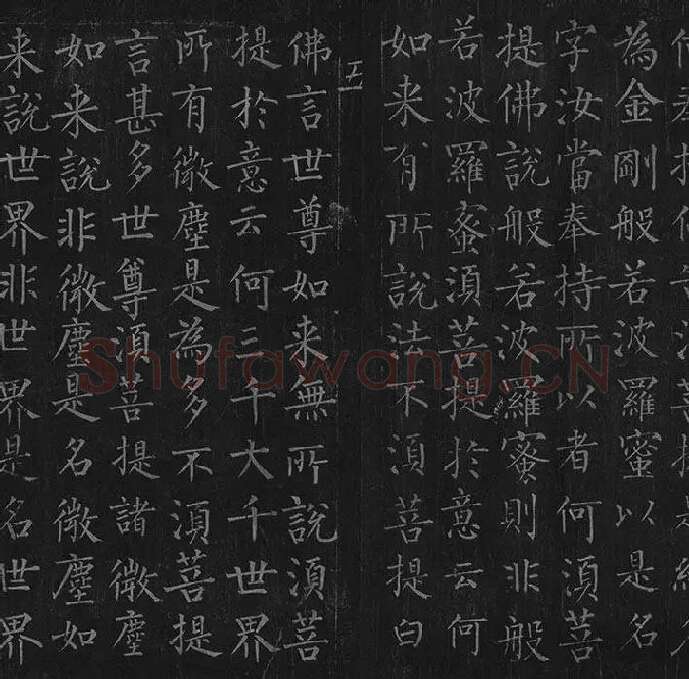 為金剛般若波羅蜜以是名
字汝當奉持所以者何須菩
提佛說般若波羅蜜則非般
若波羅蜜須菩提於意云何
如来有所說法不須菩提白
佛言世尊如来無所說須菩
提於意云何三千大千世界
所有微塵是為多不須菩提
言甚多世尊須菩提諸微塵
如来說非微塵是名微塵如
来說世界非世界是名世界
Shufawang.CN